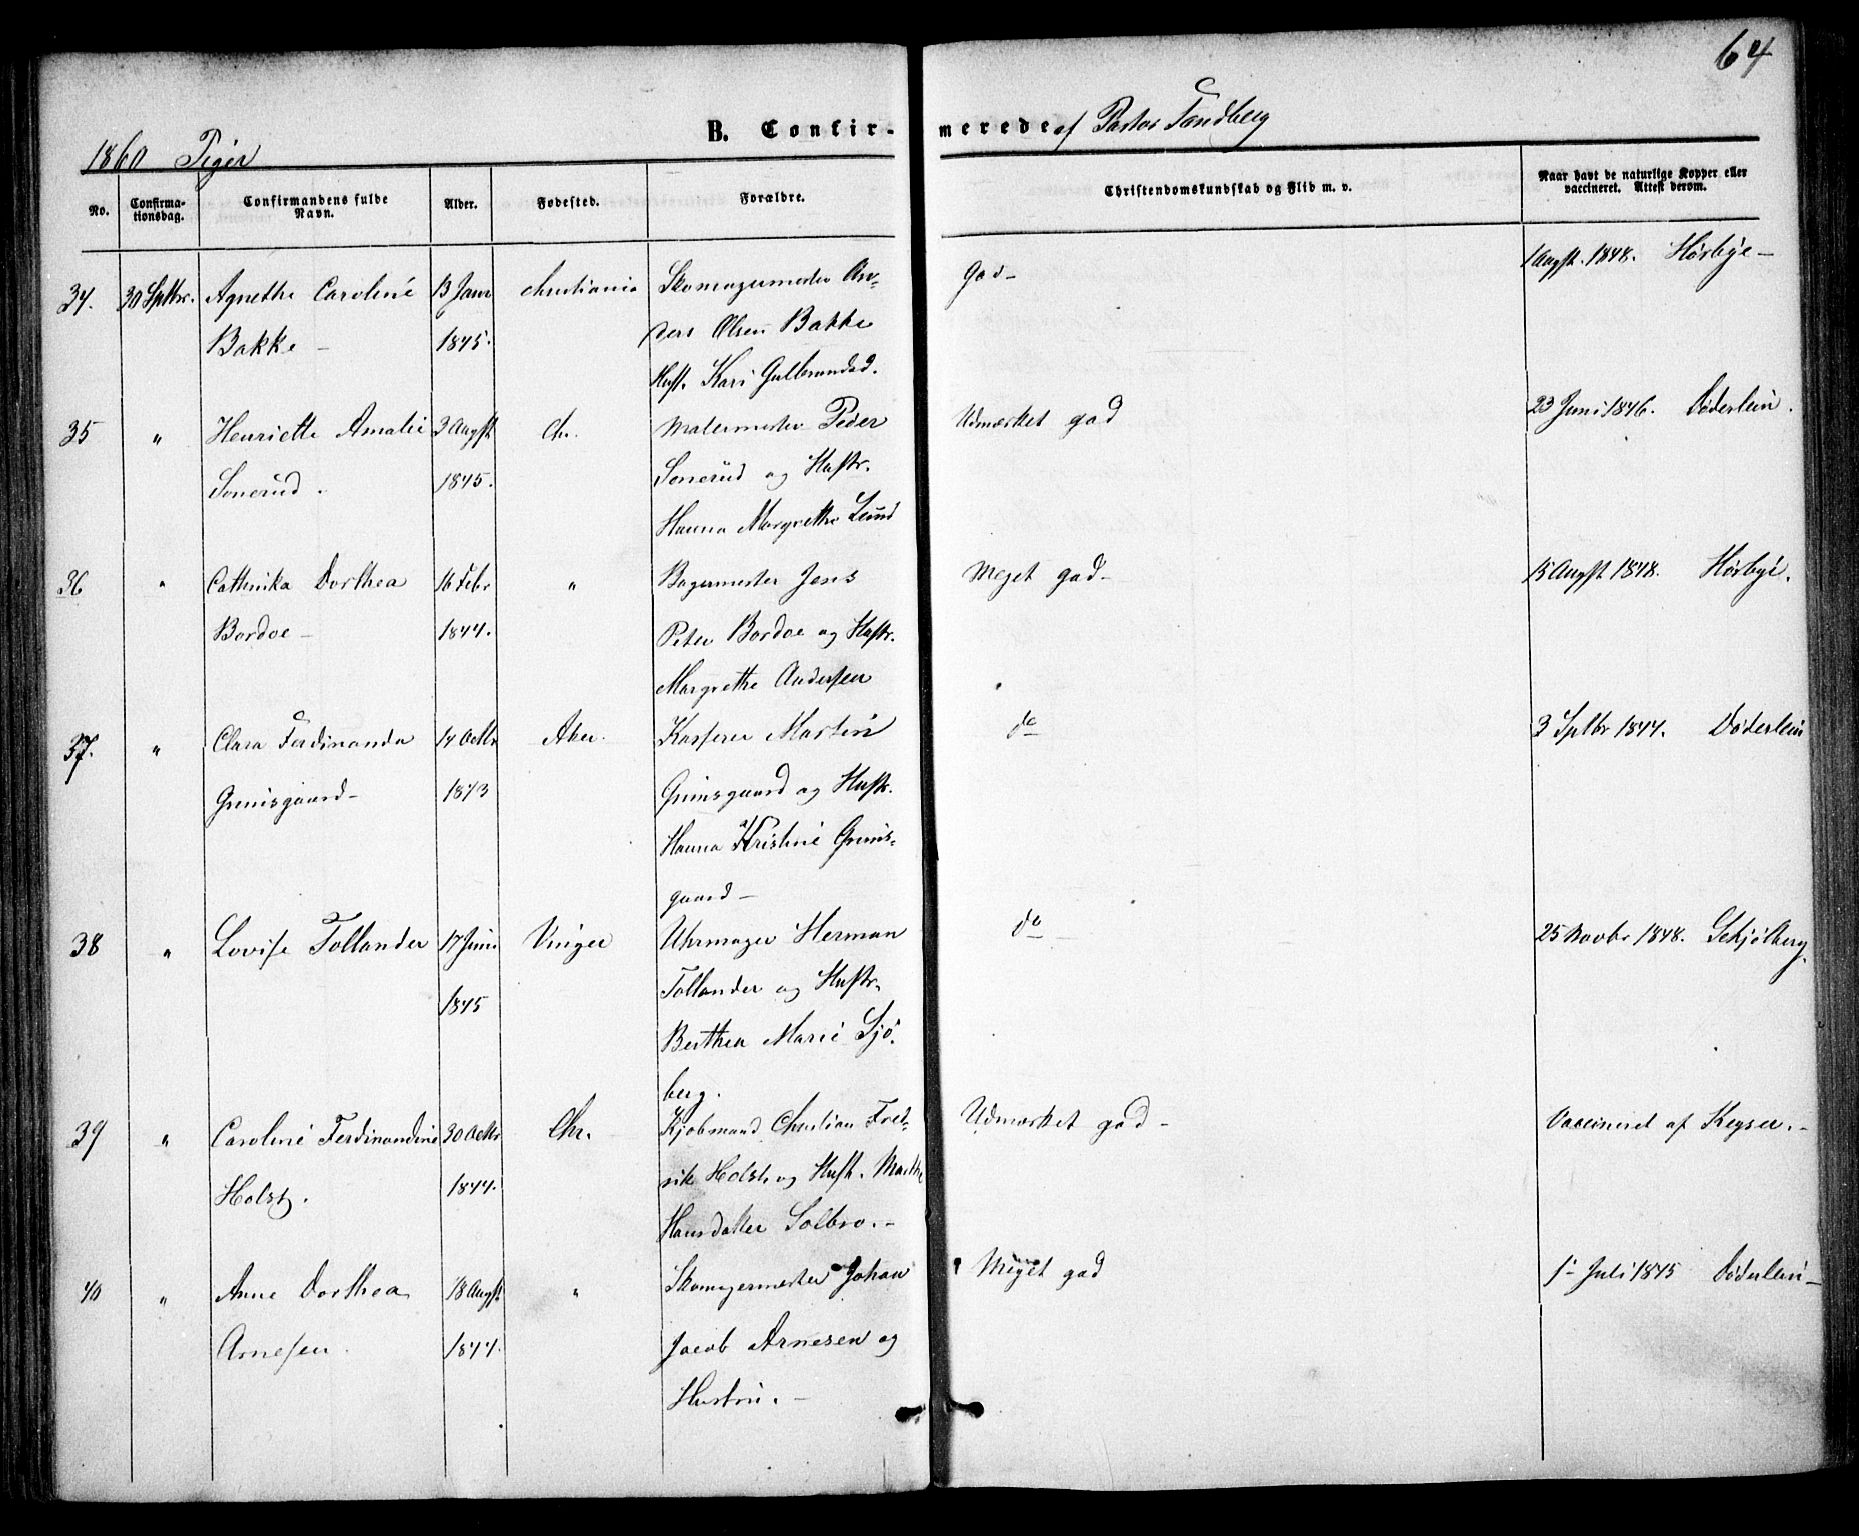 64
B. Confir- merede af Pastor Tandberg
1860 Piger
No.
Confirma-
tionsdag.
Confirmandens fulde
Navn.
Alder.
Fødested.
Forældre.
Christendomskundskab og Flid m. v.
Naar havt de naturlige Kopper eller
vaccineret. Attest derom.
34. 30 Sptbr. Agnethe Caroline 13 Janr Christiania Skomagermester An- God- 1 Augst. 1848. Hørbye-
Bakke - 1845. ders Olsen Bakke
Hust. Kari Gulbrandsd.
35 " Henriette Amalie 3 Augst Chr. Malermester Peder Udmærket god 23 Juni 1846. Døderlein.
Sonerud. 1845. Sonerud og Hustr.
Hanna Margrethe Lund
36 " Cathinka Dorthea 16 Febr " Bagermester Jens Meget god- 15 Augst 1848. Hørbye.
Bordoe - 1844. Peter Bordoe og Hustr.
Margrethe Andersen
37. " Clara Ferdinanda 14 Octbr Aker. Kasserer Martin do 3 Sptbr 1844. Døderlein
Grimsgaard- 1843 Grimsgaard og Hustr.
Hanna Kristine Grims-
gaard-
38 " Lovise Tollander 17 Juni Vinger Uhrmager Herman do 25 Novbr 1848. Schjølberg.
1845 Tollander og Hustr.
Berthea Marie Sjö-
berg.
39 " Caroline Ferdinandine 30 Octbr Chr. Kjøbmand Christian Fred- Udmærket god- Vaccineret af Keyser.-
Holst. 1844. rik Holst og Hust. Marthe
Hansdatter Solbro.-
40 " Anne Dorthea 18 Augst " Skomagermester Johan Meget god 1- Juli 1845 Døderlein-
Arnesen. 1844. Jacob Arnesen og
Hustru.-